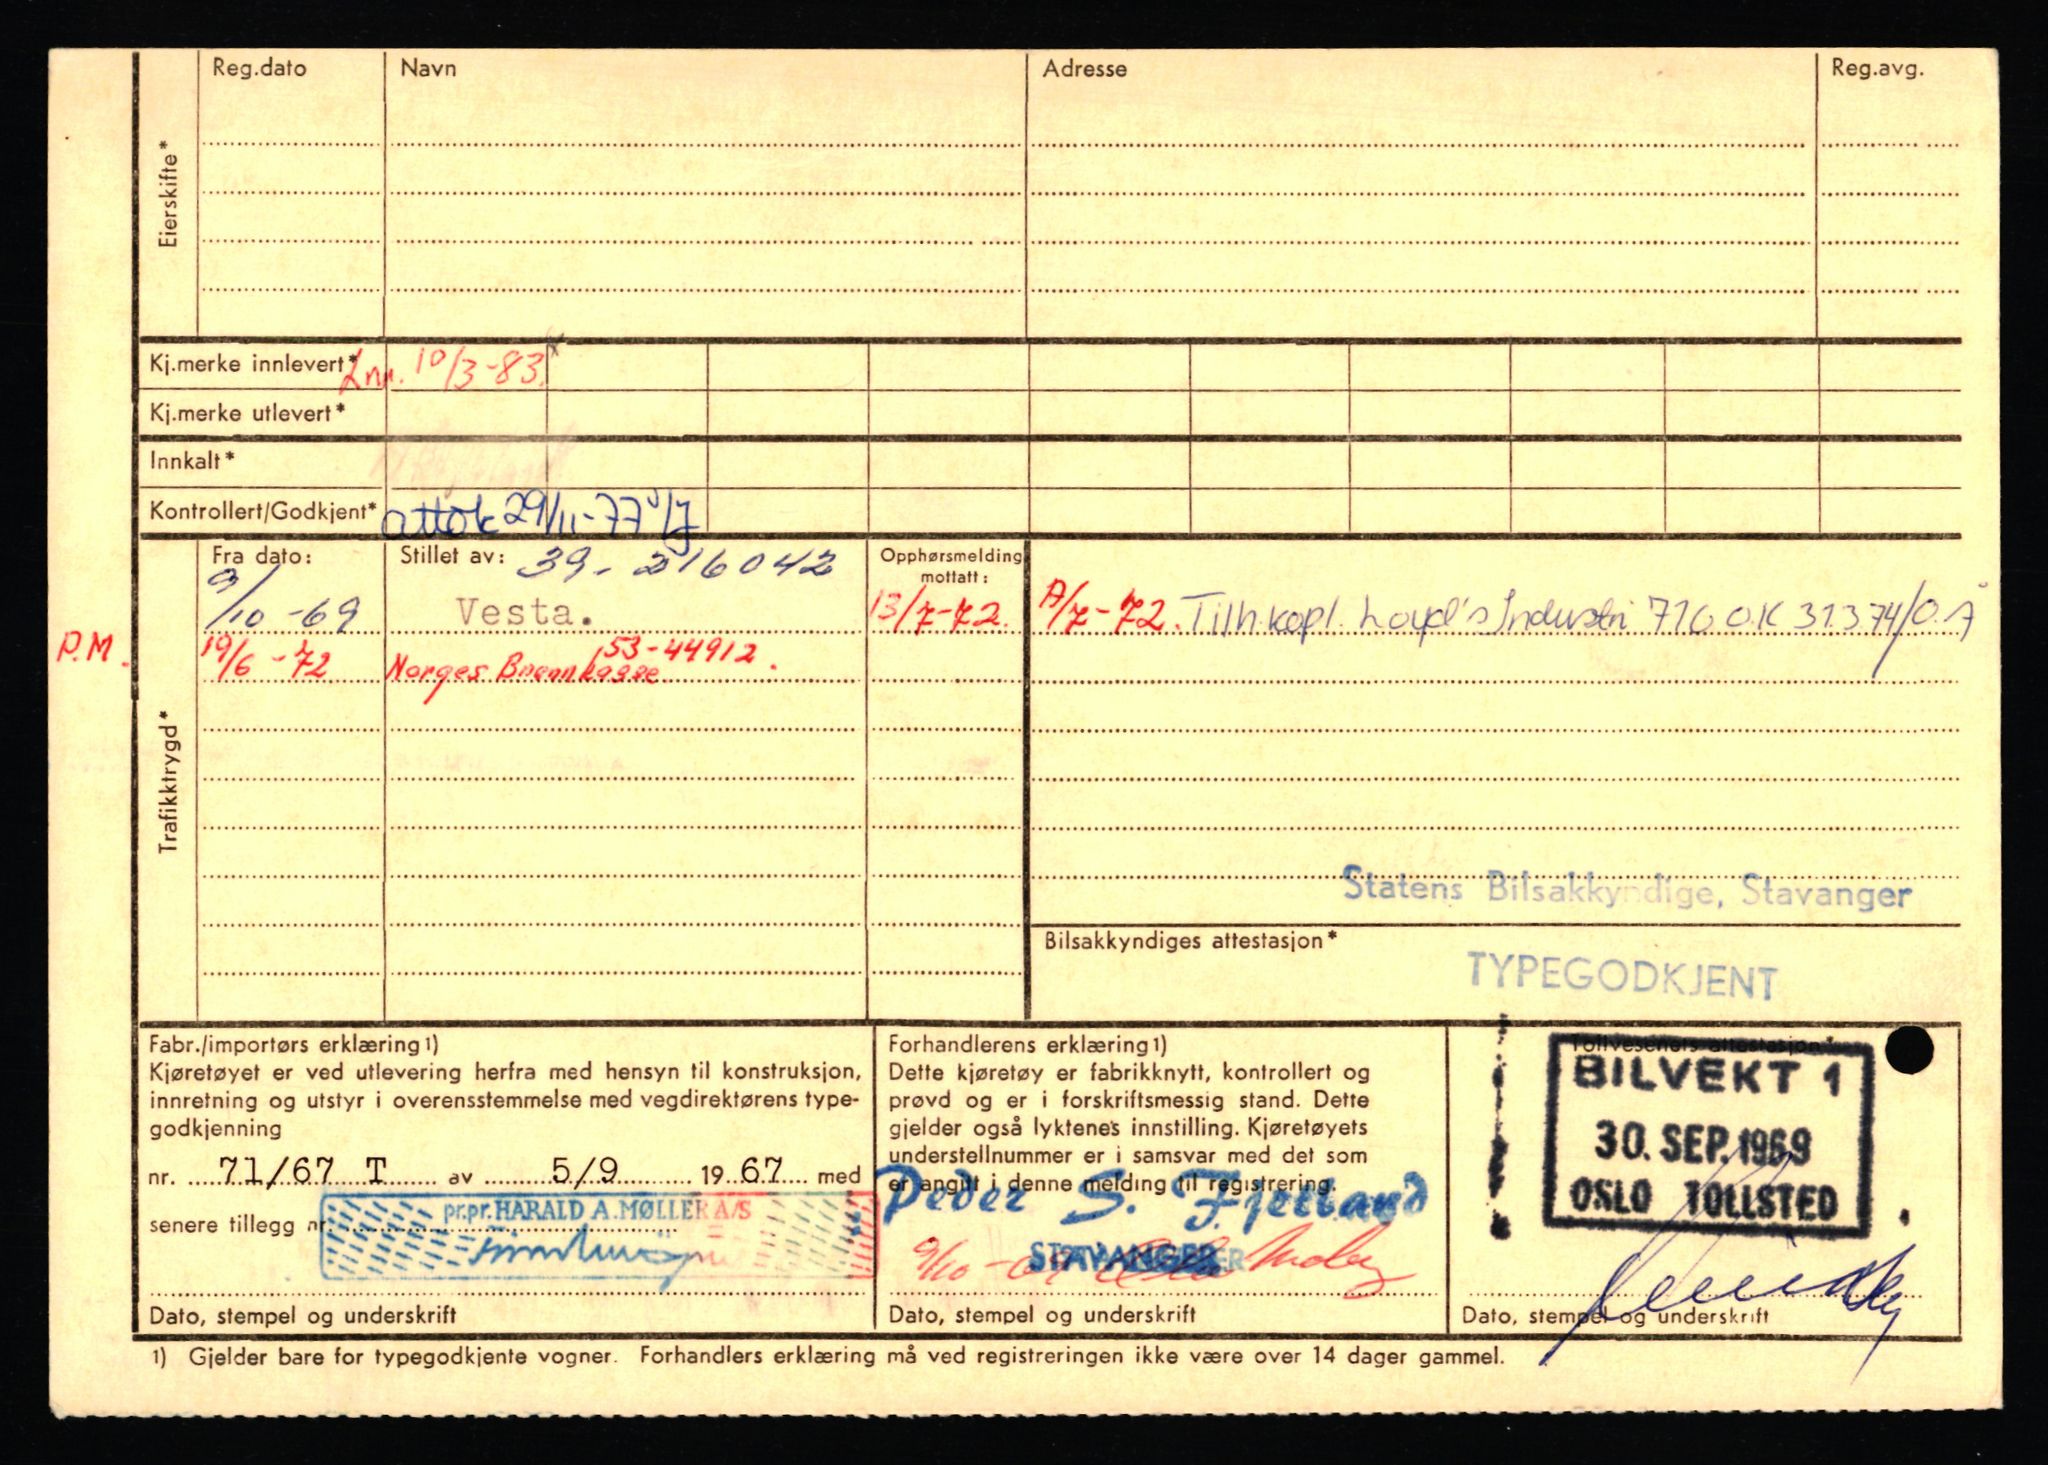 Reg.dato Navn Adresse Reg.avg.
Eierskifte*
Kj.merke innlevert* Inn. 10/3-83.
Kj.merke utlevert*
Innkalt*
Kontrollert/Godkjent* attok 29/11-77
Trafikktrygd*
Fra dato: Stillet av: 39-216042 Opphørsmelding mottatt:
9/10-69 Vesta. 13/7-72. /7-72. Tilh.kopl. Loyd's Industri 710 O.K 31374/O.Å
P.M. 19/6-72 Norges Brannkasse 53-44912.
Statens Bilsakkyndige, Stavanger
Bilsakkyndiges attestasjon*
TYPEGODKJENT
Fabr./importørs erklæring 1)
Kjøretøyet er ved utlevering herfra med hensyn til konstruksjon,
innretning og utstyr i overensstemmelse med vegdirektørens type-
godkjenning
nr. 71/67 T av 5/9 1967 med
senere tillegg nr.
pr.pr. HARALD A. MØLLER A/S
Dato, stempel og underskrift
Forhandlerens erklæring 1)
Dette kjøretøy er fabrikknytt, kontrollert og
prøvd og er i forskriftsmessig stand. Dette
gjelder også lyktenes innstilling. Kjøretøyets
understellnummer er i samsvar med det som
er angitt i denne melding til registrering.
Peder S. Fjelland
STAVANGER
9/10-69
Dato, stempel og underskrift
Tollvesenets attestasjon*
BILVEKT 1
30. SEP. 1969
OSLO TOLLSTED
Dato, stempel og underskrift
1) Gjelder bare for typegodkjente vogner. Forhandlers erklæring må ved registreringen ikke være over 14 dager gammel.